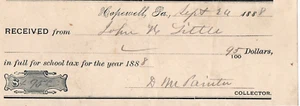 Hopewell, Pa, Sept 24 1888
RECEIVED from John K Little
95/100 Dollars,
in full for school tax for the year 1888
$ .95 D McPainter
COLLECTOR.